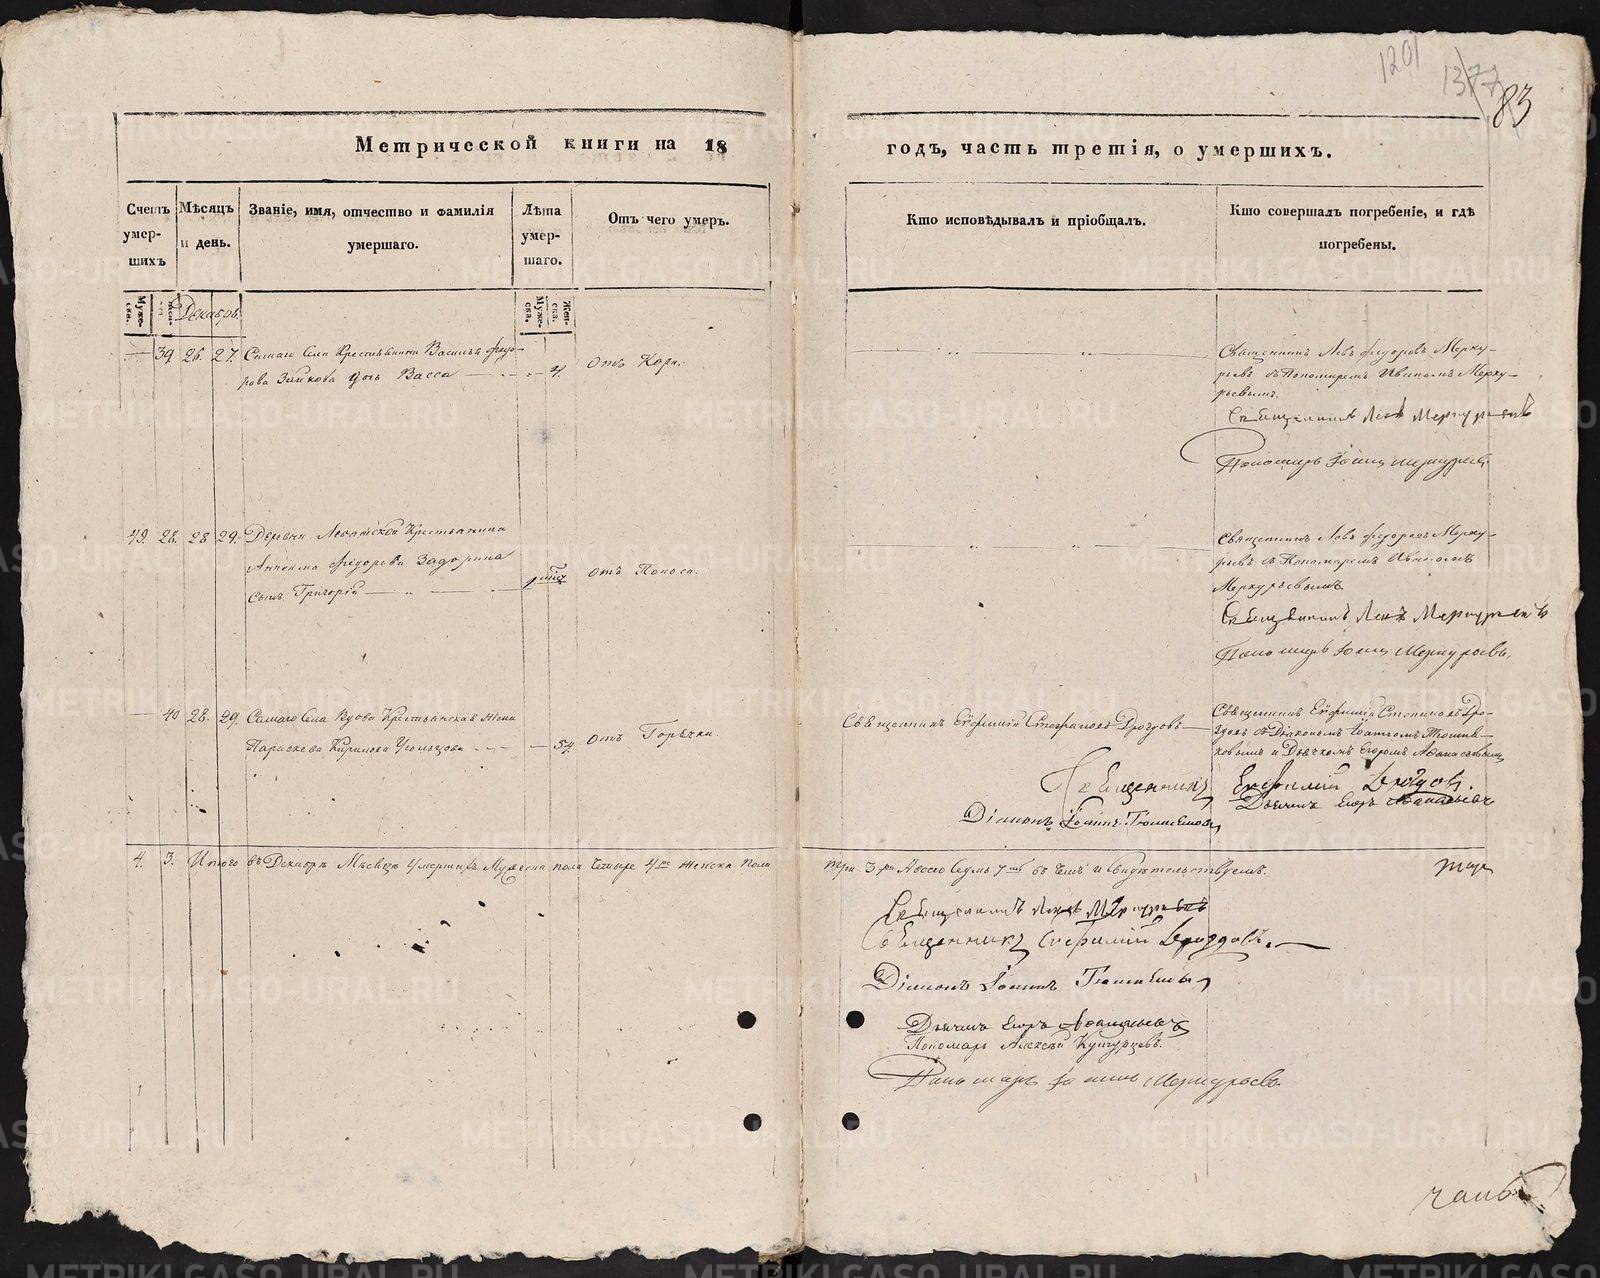 1201
1377
83
Метрической книги на 18
годъ, часть третія, о умершихъ.
Счетъ умерших
Мѣсяцъ и день.
Званіе, имя, отчество и фамилія умершаго.
Лѣта умершаго.
Отъ чего умеръ.
Кто исповѣдывалъ и пріобщалъ.
Кто совершалъ погребеніе, и гдѣ погребены.
Мужеска.
Женска.
Декабрь.
Мужеска.
Женска.
39. 26. 27. Села Крестьянина Василья Федо-
рова Зайкова дочь Васса 4.
Отъ Кори.
Священникъ Левъ Федоровъ Мерку-
рьевъ съ Пономаремъ Иваномъ Мерку-
рьевымъ.
Священникъ Левъ Меркурьевъ
Пономарь Іоаннъ Меркурьевъ
49. 28. 29. Деревни Крестьянина
Федорова Задорина
Сынъ Григорій
Отъ Поноса.
Священникъ Левъ Федоровъ Мерку-
рьевъ съ Пономаремъ Иваномъ
Меркурьевымъ.
Священникъ Левъ Меркурьевъ
Пономарь Іоаннъ Меркурьевъ.
40 28. 29. Самаго Села Вдова Крестьянская Жена
Параскева Кирилова 54.
Отъ Горячки
Священникъ Евфимій Стефановъ Дроздовъ
Священникъ Евфимій Дро-
здовъ съ Діакономъ
и Дьячкомъ Егоромъ
Священникъ Евфимій Дроздовъ.
Дьячекъ Егоръ
Діаконъ Іоаннъ
4. 3. Итого въ Декабрѣ Мѣсяцѣ Умершихъ Мужеска пола Четыре Женска Пола
три 3 Всего Седмь 7 въ чемъ и Свидѣтельствуемъ.
Священникъ Левъ Меркурьевъ
Священникъ Евфимій Дроздовъ.
Діаконъ Іоаннъ
Дьячекъ Егоръ
Пономарь Алексѣй
Пономарь Іоаннъ Меркурьевъ.